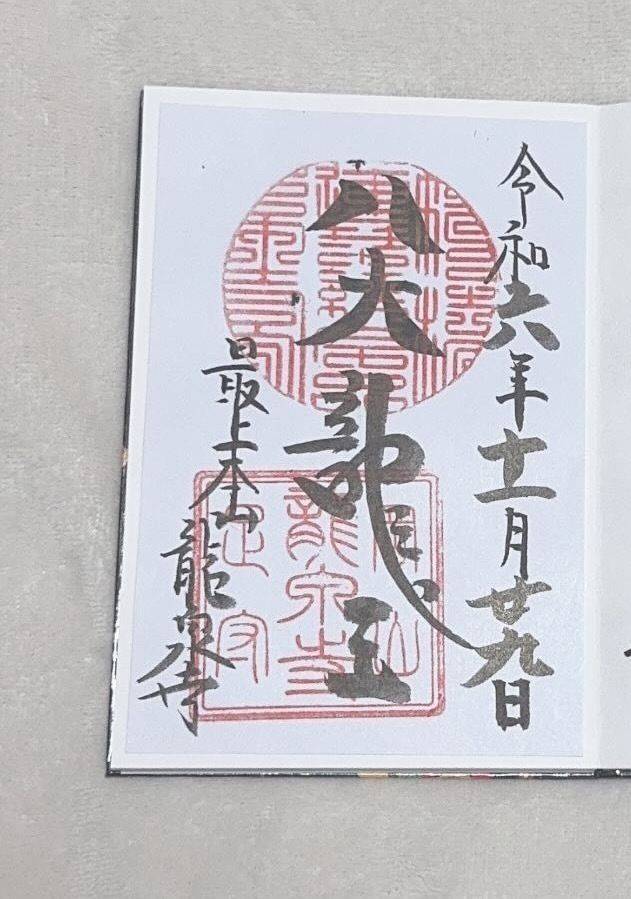 令和六年十一月廿九日
八大龍王
最上本山
龍泉寺
龍泉寺